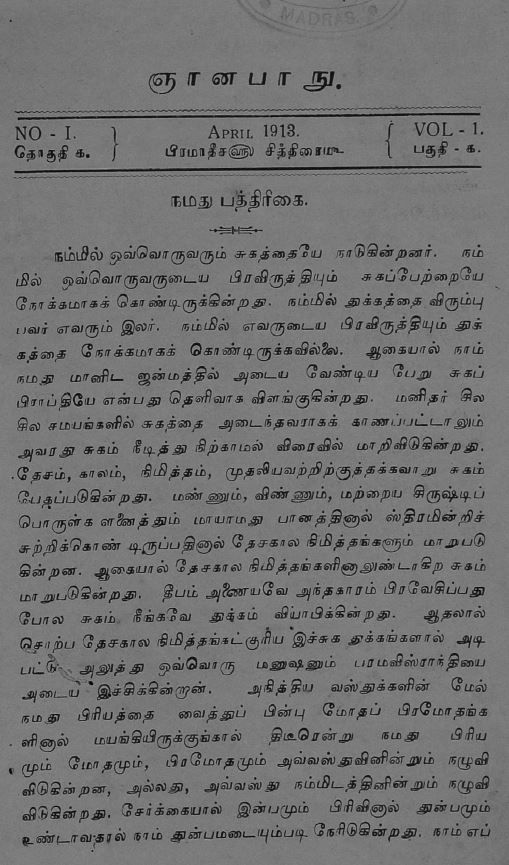 MADRAS.
ஞானபாநு.
NO - I.
APRIL 1913.
VOL - 1.
தொகுதி க.
பிரமாதீசளு சித்திரைமீ
பகுதி - க.
நமது பத்திரிகை.
நம்மில் ஒவ்வொருவரும் சுகத்தையே நாடுகின்றனர். நம்
மில் ஒவ்வொருவருடைய பிரவிருத்தியும் சுகப்பேற்றையே
நோக்கமாகக் கொண்டிருக்கின்றது. நம்மில் துக்கத்தை விரும்பு
பவர் எவரும் இலர். நம்மில் எவருடைய பிரவிருத்தியும் துக்
கத்தை நோக்கமாகக் கொண்டிருக்கவில்லை. ஆகையால் நாம்
நமது மானிட ஜன்மத்தில் அடைய வேண்டிய பேறு சுகப்
பிராப்தியே என்பது தெளிவாக விளங்குகின்றது. மனிதர் சில
சில சமயங்களில் சுகத்தை அடைந்தவராகக் காணப்பட்டாலும்
அவரது சுகம் நீடித்து நிற்காமல் விரைவில் மாறிவிடுகின்றது.
தேசம், காலம், நிமித்தம், முதலியவற்றிற்குத்தக்கவாறு சுகம்
பேதப்படுகின்றது. மண்ணும், விண்ணும், மற்றைய சிருஷ்டிப்
பொருள்க ளனைத்தும் மாயாமது பானத்தினால் ஸ்திரமின்றிச்
சுற்றிக்கொண் டிருப்பதினால் தேசகால நிமித்தங்களும் மாறுபடு
கின்றன. ஆகையால் தேசகால நிமித்தங்களினாலுண்டாகிற சுகம்
மாறுபடுகின்றது. தீபம் அணையவே அந்தகாரம் பிரவேசிப்பது
போல சுகம் நீங்கவே துக்கம் வியாபிக்கின்றது. ஆதலால்
சொற்ப தேசகால நிமித்தங்கட்குரிய இச்சுக துக்கங்களால் அடி
பட்டு அலுத்து ஒவ்வொரு மனுஷனும் பரமவிஸ்ராந்தியை
அடைய இச்சிக்கின்றான். அநித்திய வஸ்துக்களின் மேல்
நமது பிரியத்தை வைத்துப் பின்பு மோதப் பிரமோதங்க
ளினால் மயங்கியிருக்குங்கால் திடீரென்று நமது பிரிய
மும் மோதமும், பிரமோதமும் அவ்வஸ்துவினின்றும் நழுவி
விடுகின்றன, அல்லது, அவ்வஸ்து நம்மிடத்தினின்றும் நழுவி
விடுகின்றது. சேர்க்கையால் இன்பமும் பிரிவினால் துன்பமும்
உண்டாவதால் நாம் துன்பமடையும்படி நேரிடுகின்றது. நாம் எப்